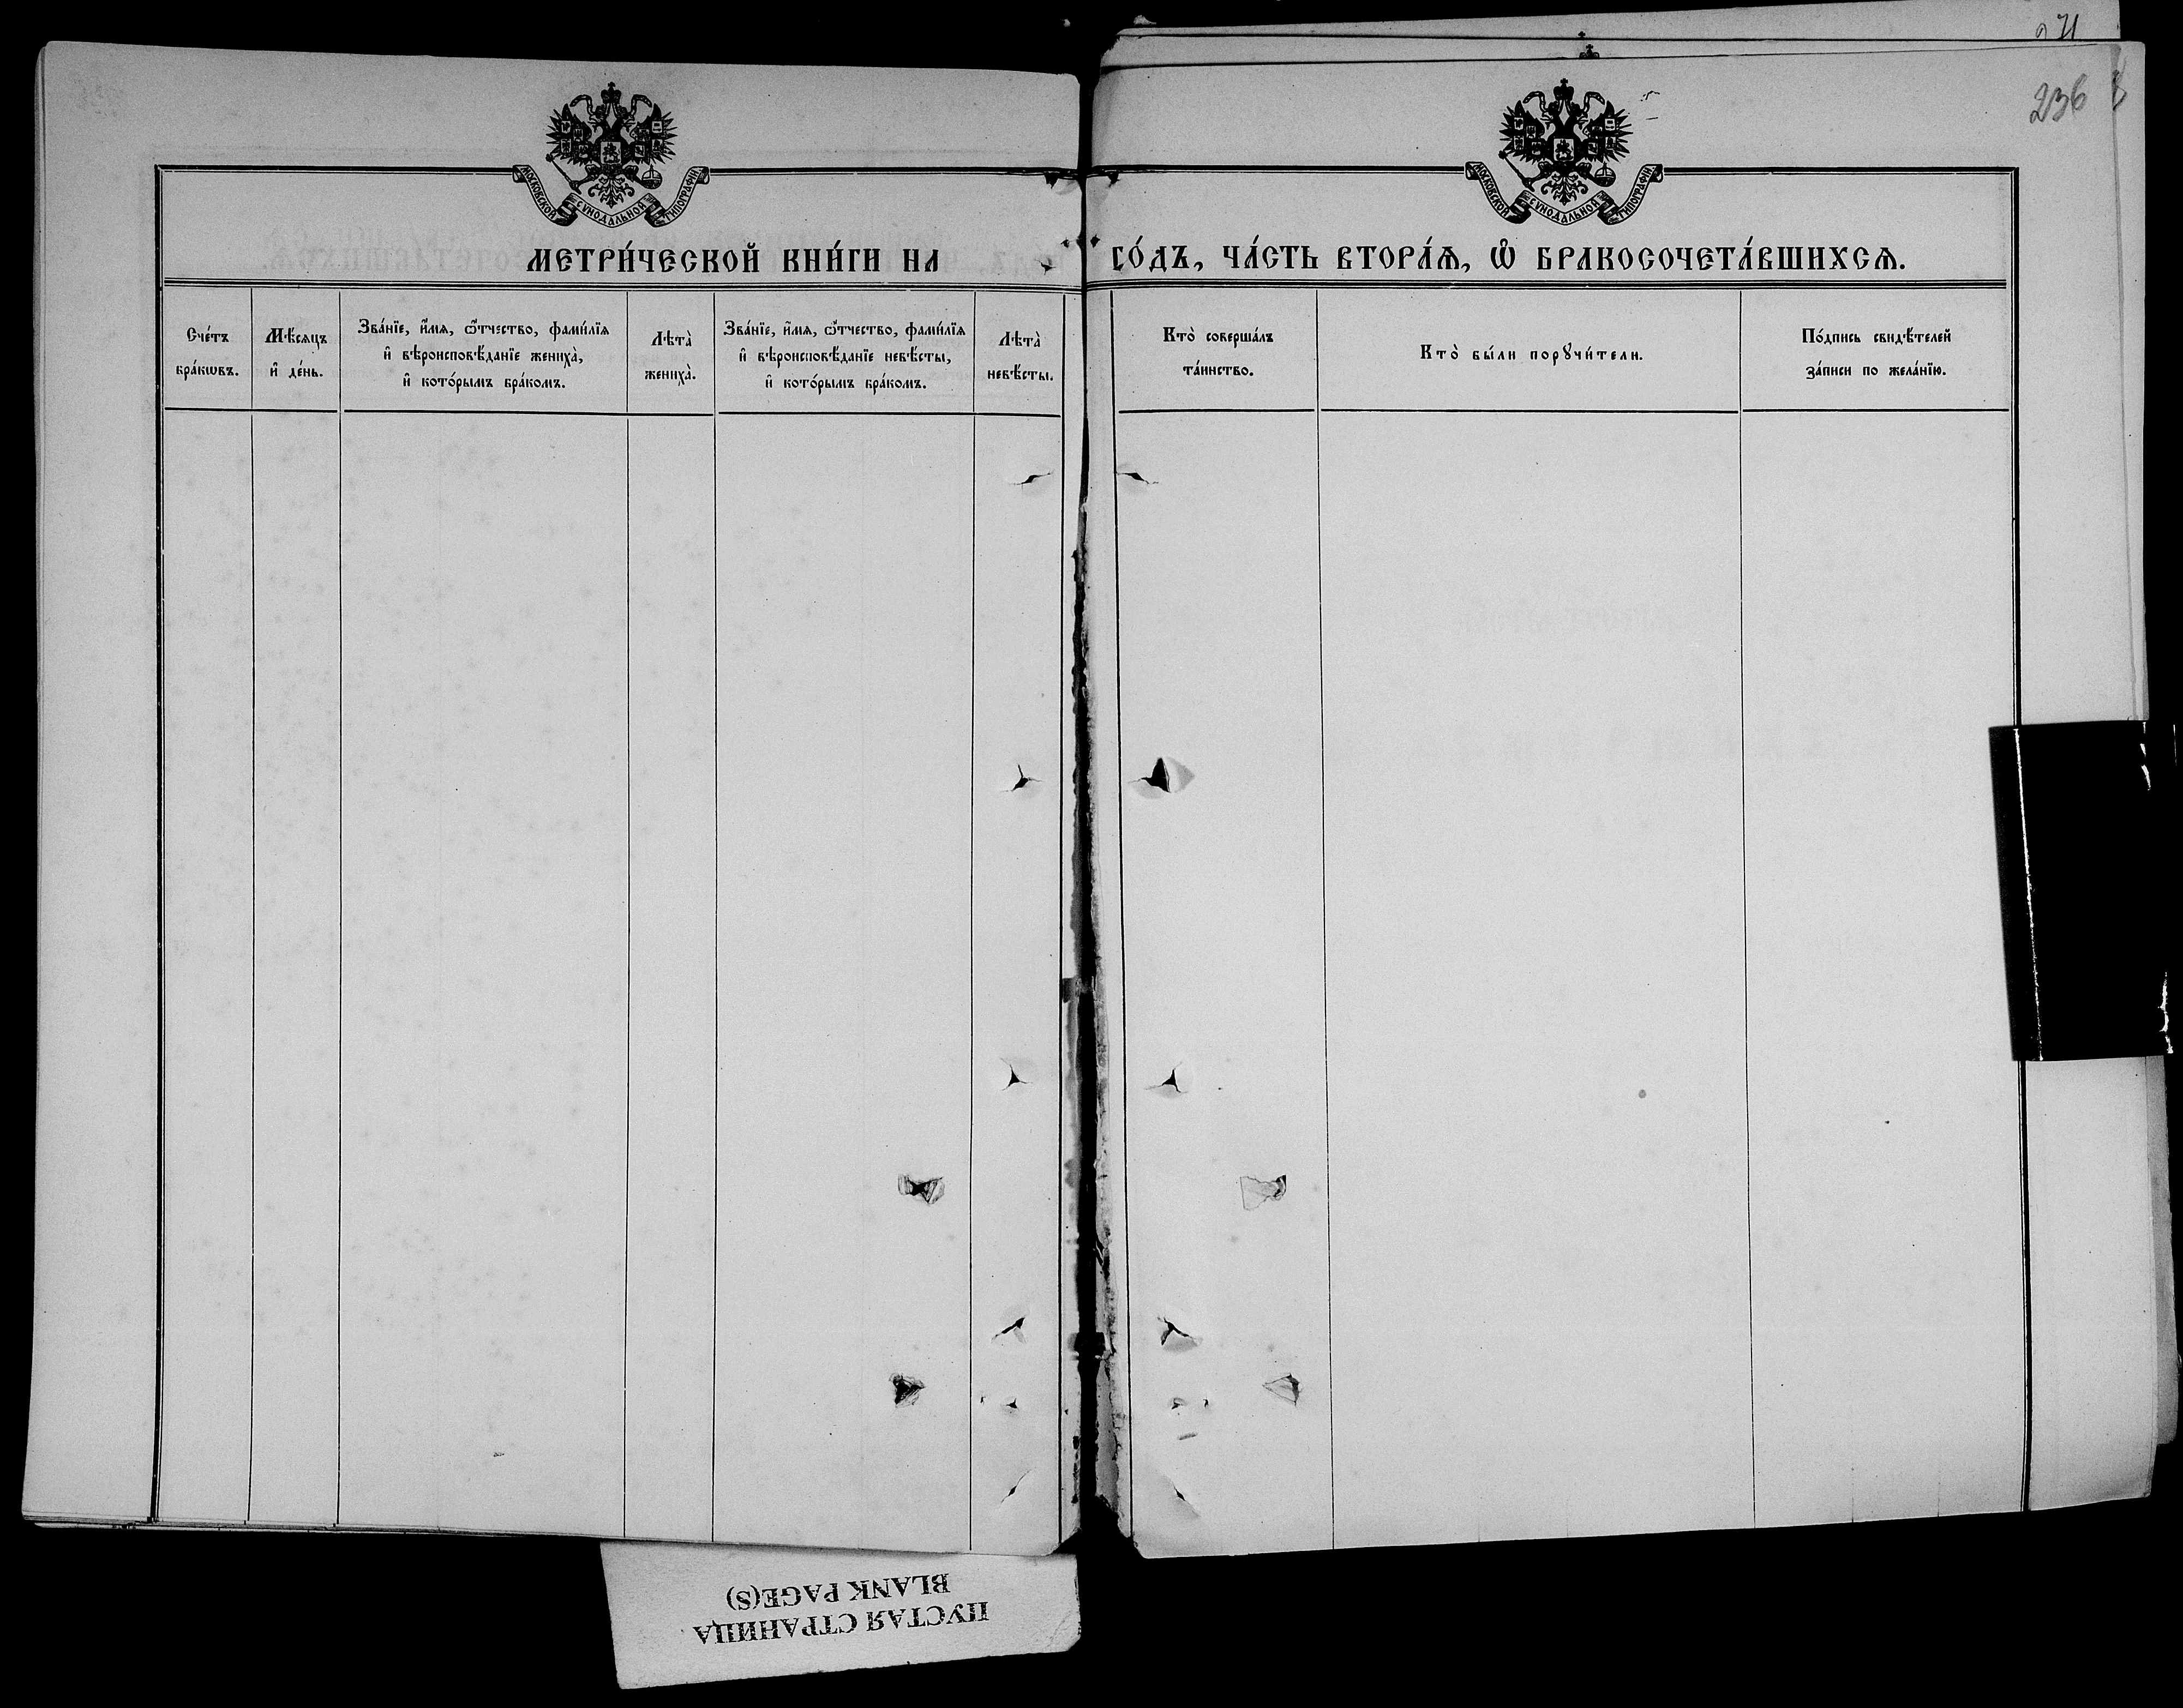 236
МОСКОВСКОЙ СѴНОДАЛЬНОЙ ТИПОГРАФІИ
МОСКОВСКОЙ СѴНОДАЛЬНОЙ ТИПОГРАФІИ
МЕТРИ́ЧЕСКОЙ КНИ́ГИ НА ГО́ДЪ, ЧА́СТЬ ВТОРА́Ѧ, Ѡ҆ БРАКОСОЧЕТА́ВШИХСѦ.
Сче́тъ
бра́кѡвъ.
Мѣ́сѧцъ
и҆ де́нь.
Зва́нїе, и҆́мѧ, ѻ҆́тчество, фами́лїѧ
и҆ вѣроисповѣ́данїе жениха̀,
и҆ кото́рымъ бра́комъ.
Лѣта̀
жениха̀.
Зва́нїе, и҆́мѧ, ѻ҆́тчество, фами́лїѧ
и҆ вѣроисповѣ́данїе невѣ́сты,
и҆ кото́рымъ бра́комъ.
Лѣта̀
невѣ́сты.
Кто̀ соверша́лъ
та́инство.
Кто̀ бы́ли порꙋчи́тели.
По́дпись свидѣ́телей
за́писи по жела́нїю.
ПУСТАЯ СТРАНИЦА
BLANK PAGE(S)